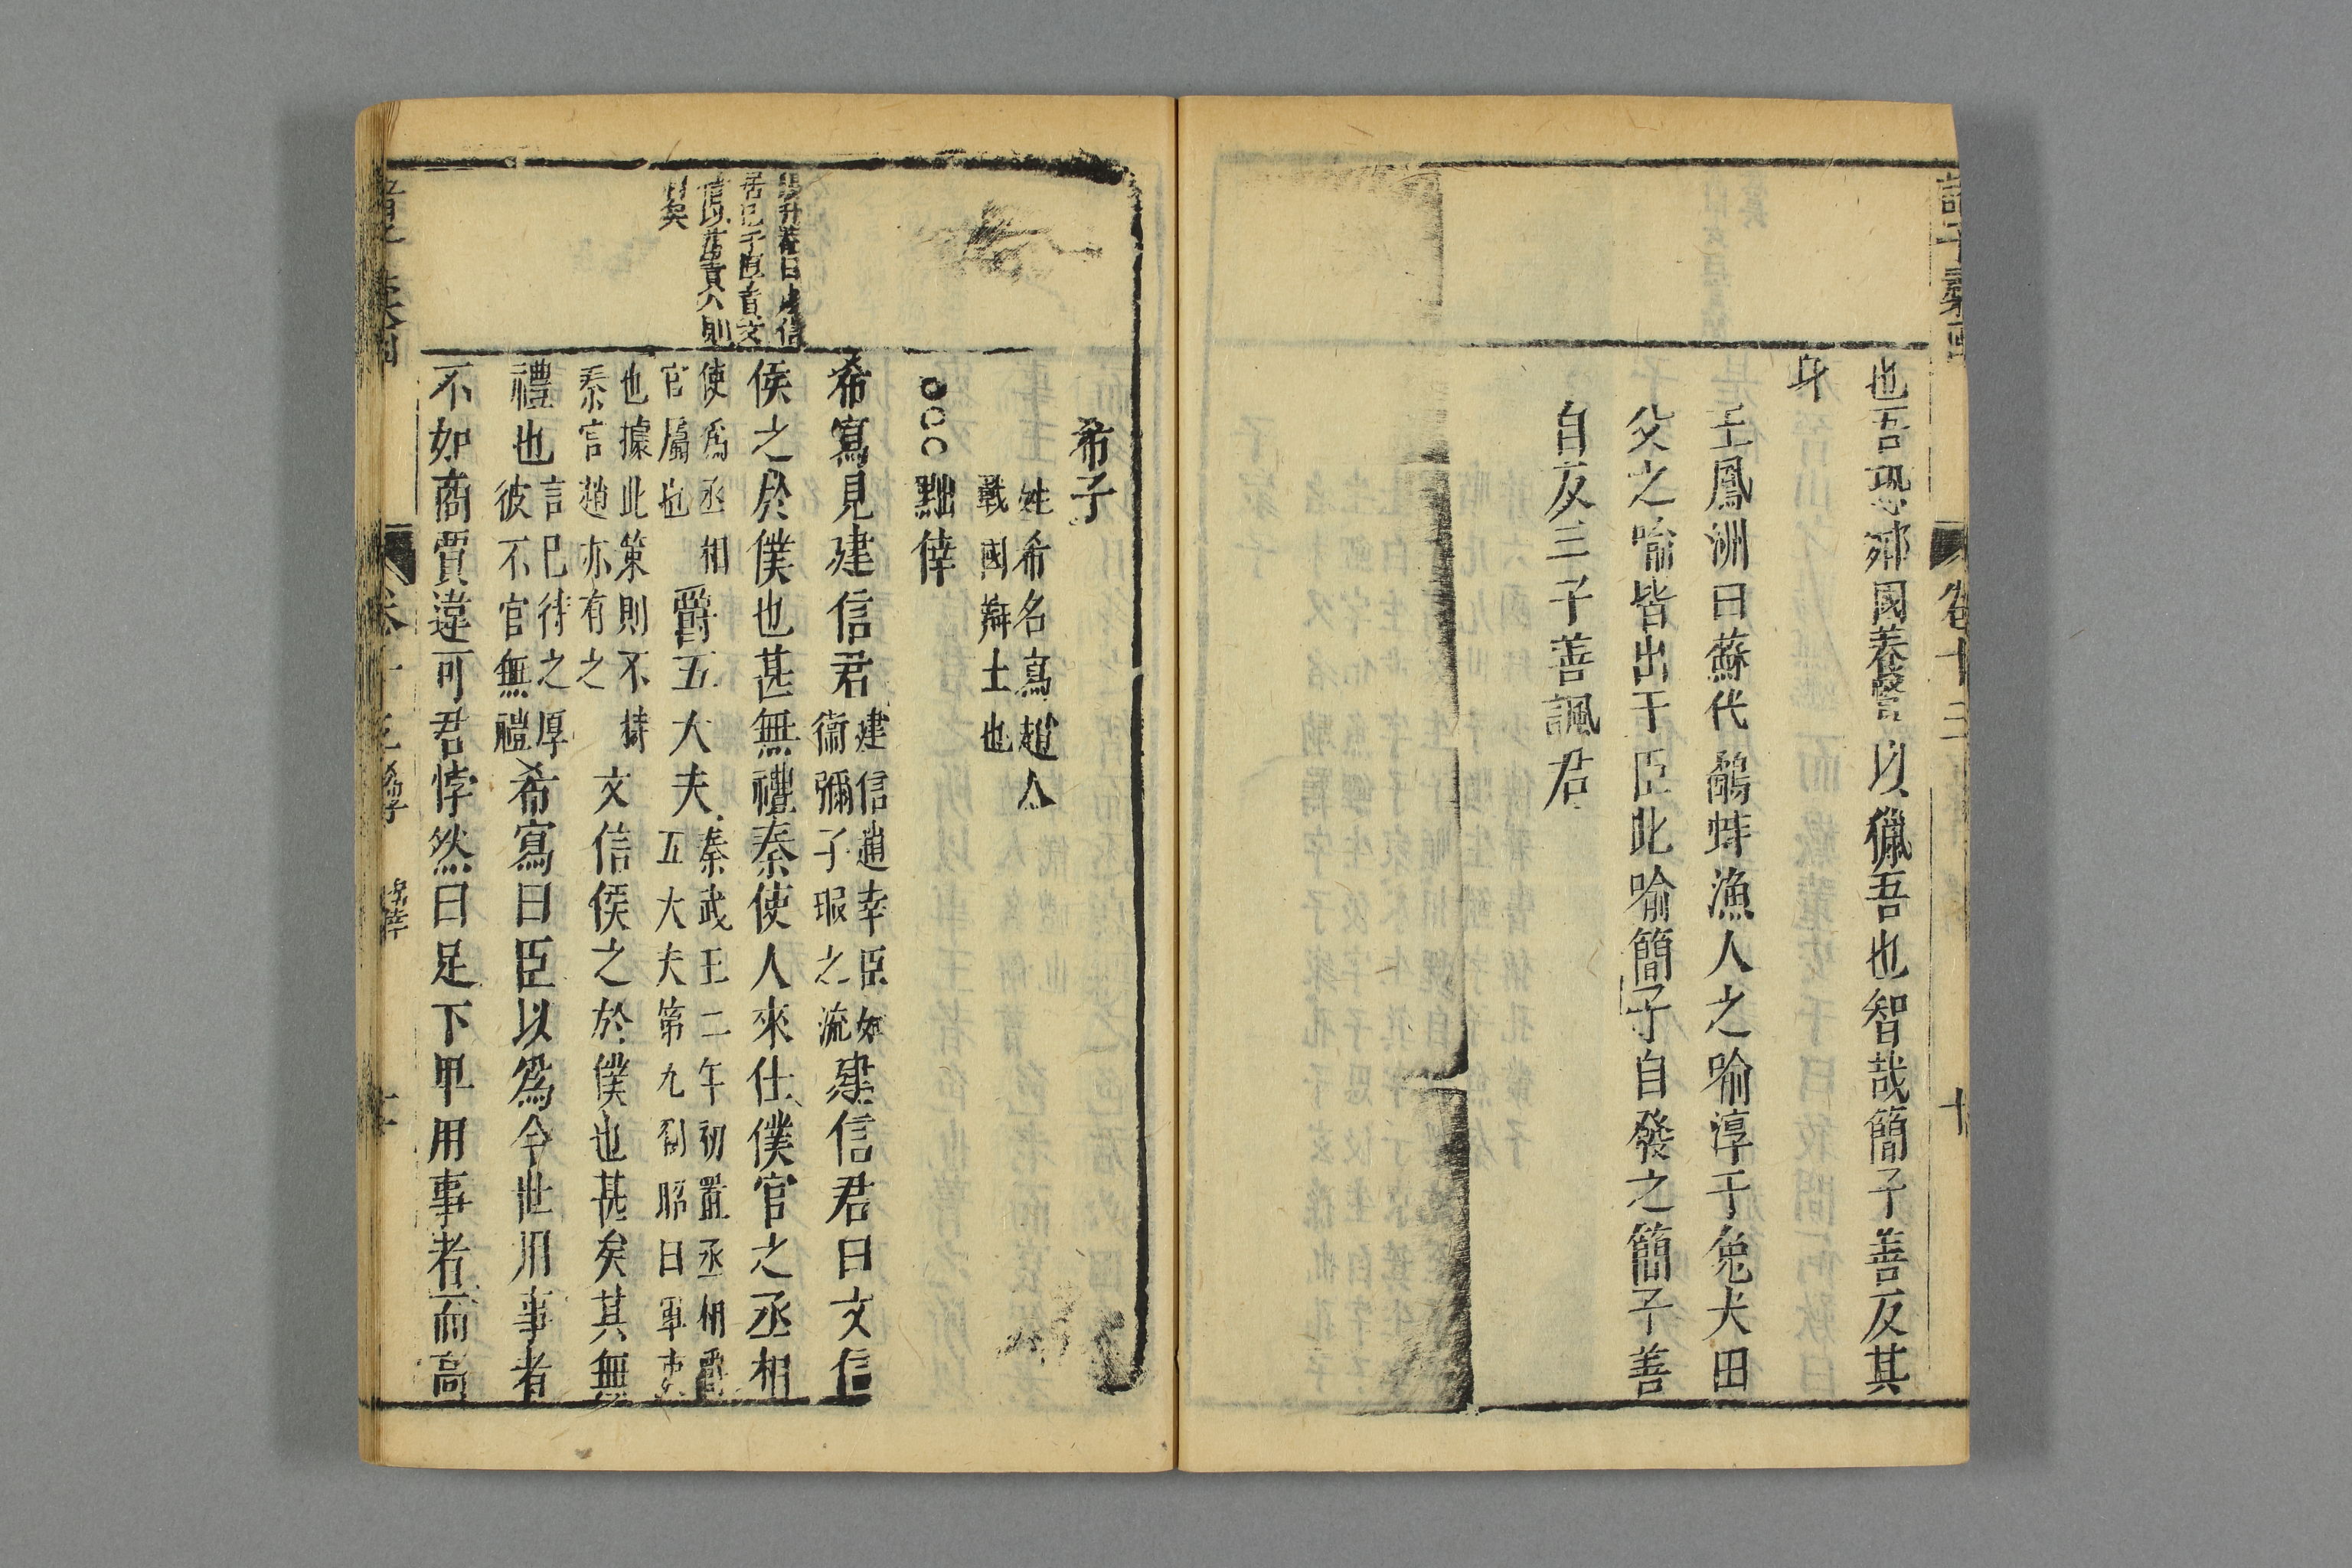 也吾恐鄰國養譬以獵吾也智哉簡子善反其
身
王鳳洲曰蘇代鷸蚌漁人之喻淳于兔犬田
父之喻皆出于臣此喻簡子自發之簡子善
自反三子善諷君
卷十三
十
希子
姓希名寫趙人
戰國辯士也
○○○黜倖
希寫見建信君建信趙幸臣如
衛彌子瑕之流建信君曰文信
侯之於僕也甚無禮秦使人來仕僕官之丞相
使爲丞相
官屬也爵五大夫秦武王二年初置丞相爵
五大夫第九劉昭曰軍吏
也據此策則不特
秦官趙亦有之文信侯之於僕也甚矣其無
禮也言已待之厚
彼不官無禮希寫曰臣以爲今世用事者
不如商賈違可君悖然曰足下卑用事者而高
居已予直者文
信以舊責人則
矣